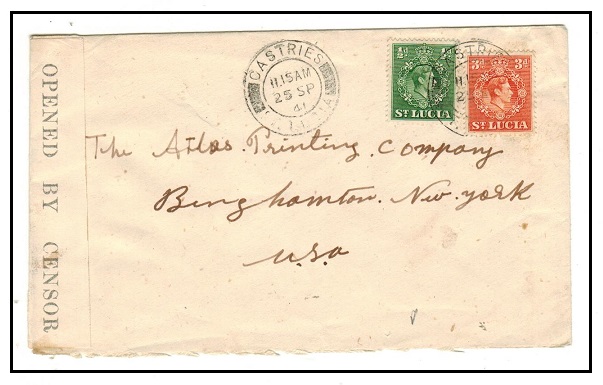 OPENED BY CENSOR
CASTRIES
11.15AM
25 SP
41
½d ½d
ST LUCIA
3d 3d
ST LUCIA
The Atlas. Printing. Company
Binghamton. New. York
U.S.a